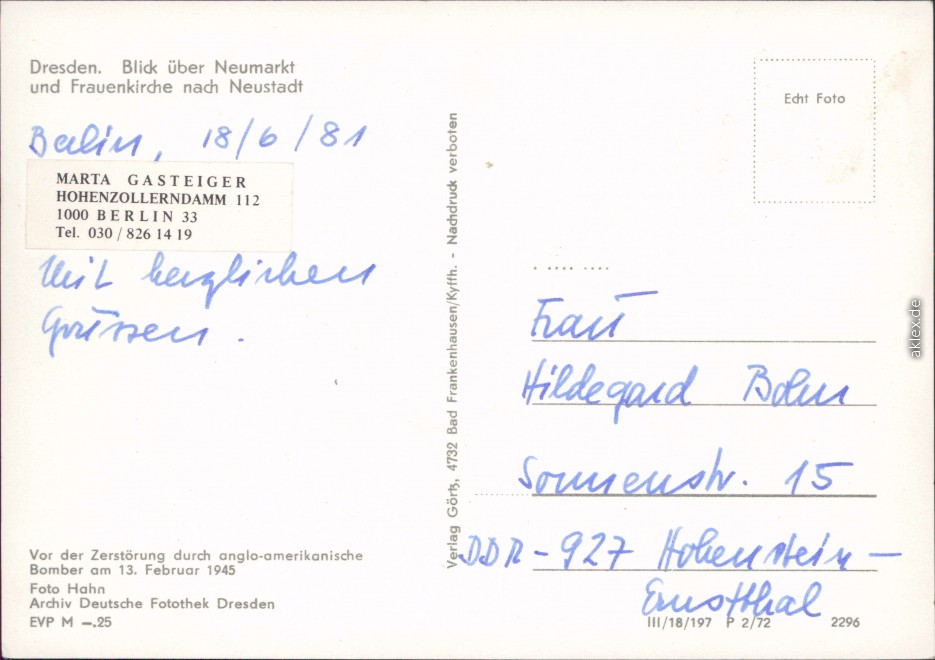 Dresden. Blick über Neumarkt
und Frauenkirche nach Neustadt
Berlin, 18/6/81
MARTA GASTEIGER
HOHENZOLLERNDAMM 112
1000 BERLIN 33
Tel. 030 / 826 14 19
Mit herzlichen
Grüssen.
Vor der Zerstörung durch anglo-amerikanische
Bomber am 13. Februar 1945
Foto Hahn
Archiv Deutsche Fotothek Dresden
EVP M –.25
Verlag Görtz, 4732 Bad Frankenhausen/Kyffh. - Nachdruck verboten
Echt Foto
Frau
Hildegard
Sonnenstr. 15
DDR - 927 Hohenstein –
Ernstthal
III/18/197 P 2/72 2296
aklex.de